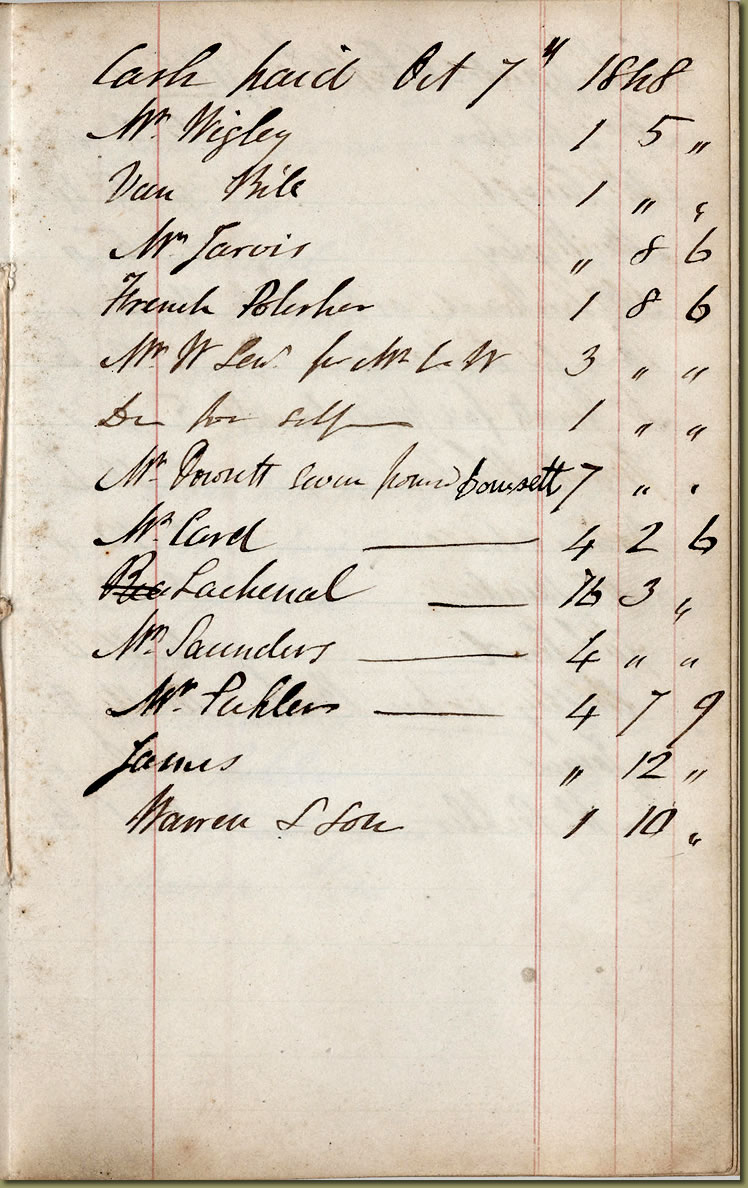 Cash paid Oct 7th 1848
Mr. Wigley 1 5 "
Van Bile 1 " "
Mr. Jarvis " 8 6
French Polisher 1 8 6
Mr. W for Mr C W 3 " "
Do for self 1 " "
Mr. Dowsett seven pound Dowsett 7 " "
Mr. Card 4 2 6
Lachenal 16 3 "
Mr. Saunders 4 " "
Mr. Pichlers 4 7 9
James " 12 "
Warren & Son 1 10 "